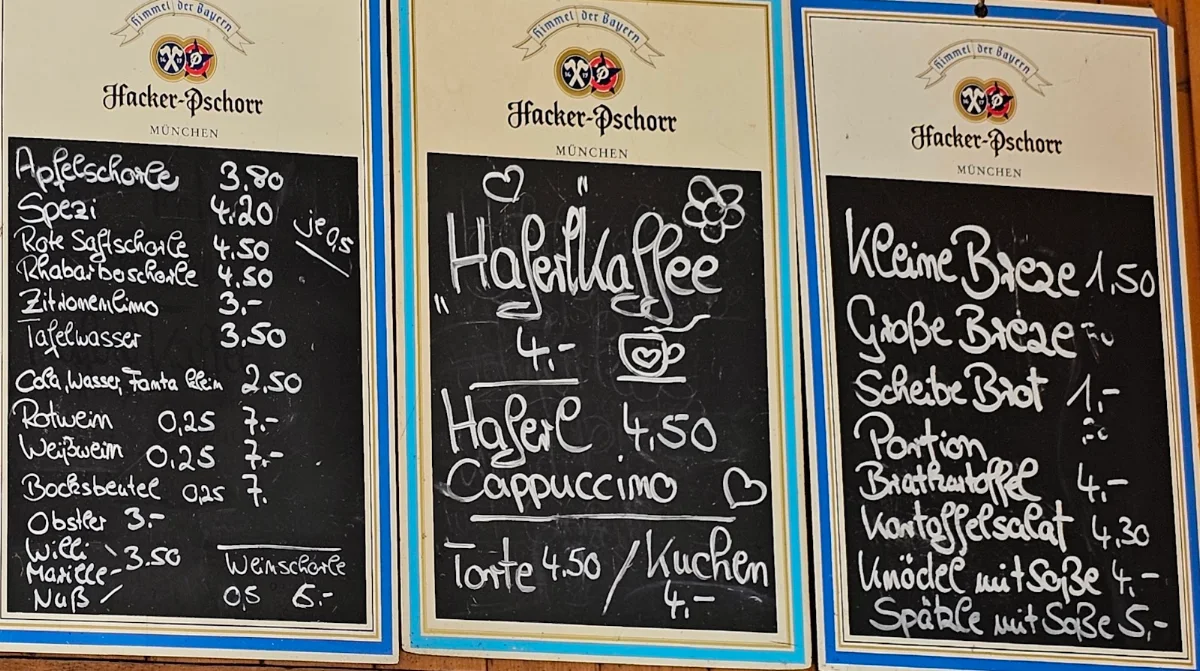 Himmel der Bayern
Hacker-Pschorr
MÜNCHEN
Apfelschorle 3,80
Spezi 4,20
je 0,5
Rote Saftschorle 4,50
Rhabarberschorle 4,50
Zitronenlimo 3,-
Tafelwasser 3,50
Cola, Wasser, Fanta klein 2,50
Rotwein 0,25 7,-
Weißwein 0,25 7,-
Bocksbeutel 0,25 7,
Obstler 3,-
Willi
Marille 3.50
Nuß
Weinschorle
0,5 6,-
Himmel der Bayern
Hacker-Pschorr
MÜNCHEN
"Haferlkaffee"
4,-
Haferl 4,50
Cappuccino
Torte 4.50 / Kuchen
4,-
Himmel der Bayern
Hacker-Pschorr
MÜNCHEN
Kleine Breze 1,50
Große Breze
Scheibe Brot 1,-
Portion
Bratkartoffel 4,-
Kartoffelsalat 4,30
Knödel mit Soße 4,-
Spätzle mit Soße 5,-